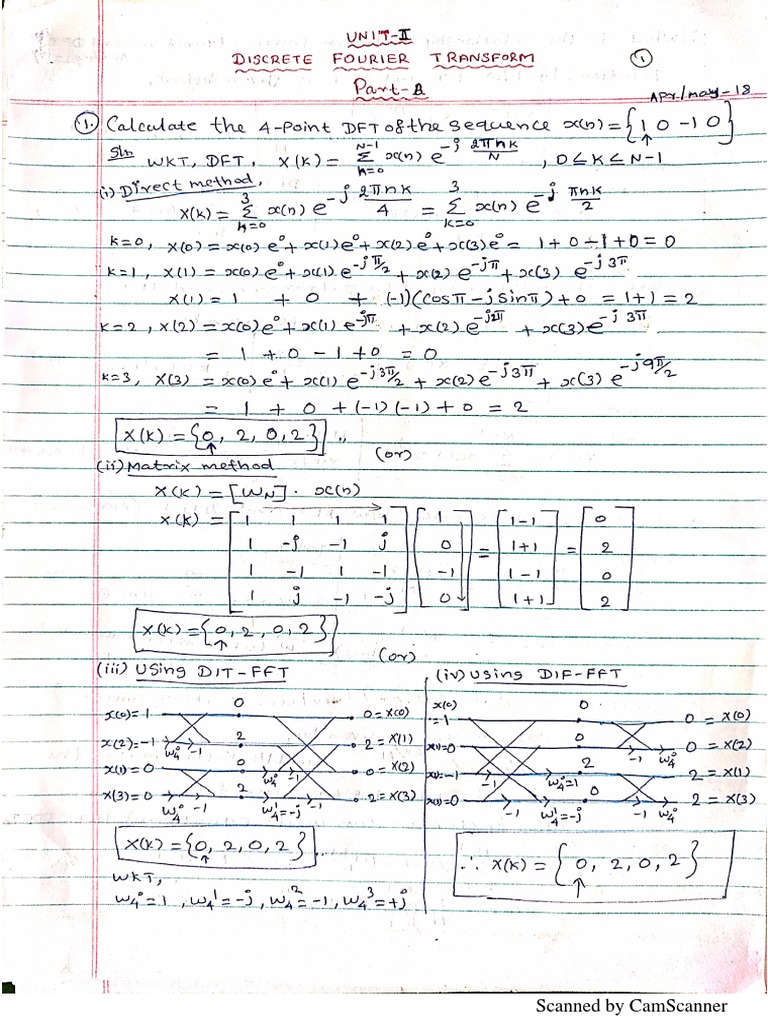 UNIT-II
DISCRETE FOURIER TRANSFORM
①
Part-A
Apr/May-18
①. Calculate the 4-Point DFT of the sequence x(n) = {1 0 -1 0}
↑
Sln
WKT, DFT, X(K) = Σ_{n=0}^{N-1} x(n) e^{-j 2πnK/N} , 0≤K≤N-1
(i) Direct method,
X(K) = Σ_{n=0}^{3} x(n) e^{-j 2πnK/4} = Σ_{K=0}^{3} x(n) e^{-j πnK/2}
K=0, X(0) = x(0) e^0 + x(1) e^0 + x(2) e^0 + x(3) e^0 = 1+0-1+0 = 0
K=1, X(1) = x(0) e^0 + x(1) e^{-jπ/2} + x(2) e^{-jπ} + x(3) e^{-j3π}
X(1) = 1 + 0 + (-1)(cosπ - j sinπ) + 0 = 1+1 = 2
K=2, X(2) = x(0) e^0 + x(1) e^{-jπ} + x(2) e^{-j2π} + x(3) e^{-j3π}
= 1 + 0 - 1 + 0 = 0
K=3, X(3) = x(0) e^0 + x(1) e^{-j3π/2} + x(2) e^{-j3π} + x(3) e^{-j9π/2}
= 1 + 0 + (-1)(-1) + 0 = 2
X(K) = {0, 2, 0, 2}
↑
(or)
(ii) Matrix method
X(K) = [W_N] . x(n)
X(K) = [1 1 1 1] [1] = [1-1] = [0]
[1 -j -1 j] [0] [1+1] [2]
[1 -1 1 -1] [-1] [1-1] [0]
[1 j -1 -j] [0] [1+1] [2]
X(K) = {0, 2, 0, 2}
↑
(or)
(iii) Using DIT-FFT
x(0)=1 0 0=X(0)
x(2)=-1 W_4^0 -1 2 2=X(1)
x(1)=0 0 W_4^0 -1 0=X(2)
x(3)=0 W_4^0 -1 2 W_4^1=-j -1 2=X(3)
X(K) = {0, 2, 0, 2}
↑
WKT,
W_4^0=1, W_4^1=-j, W_4^2=-1, W_4^3=+j
(iv) Using DIF-FFT
x(0)
=1 0 0 = X(0)
x(1)=0 0 -1 W_4^0 0 = X(2)
=-1 -1 W_4^0=1 2 2 = X(1)
x(3)=0 -1 W_4^1=-j 0 -1 W_4^0 2 = X(3)
∴ X(K) = {0, 2, 0, 2}
↑
Scanned by CamScanner